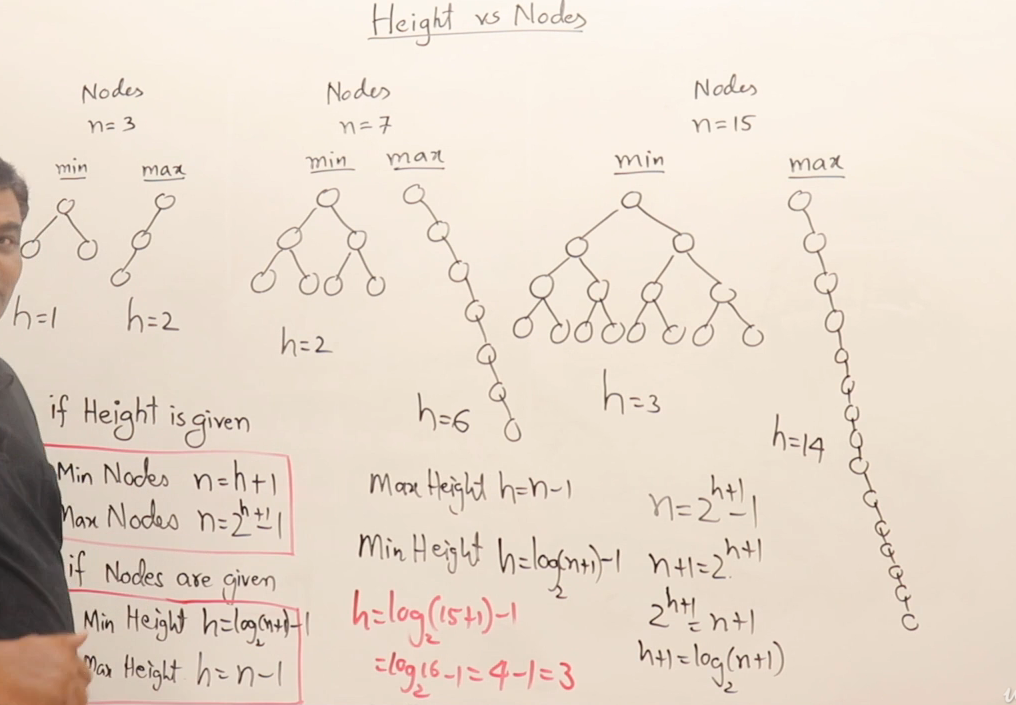 Height vs Nodes
Nodes
n=3
min max
h=1 h=2
Nodes
n=7
min max
h=2 h=6
Nodes
n=15
min max
h=3 h=14
if Height is given
Min Nodes n=h+1
Max Nodes n=2^(h+1)-1
if Nodes are given
Min Height h=log₂(n+1)-1
Max Height h=n-1
Max Height h=n-1
Min Height h=log₂(n+1)-1
h=log₂(15+1)-1
=log₂16-1=4-1=3
n=2^(h+1)-1
n+1=2^(h+1)
2^(h+1)=n+1
h+1=log₂(n+1)